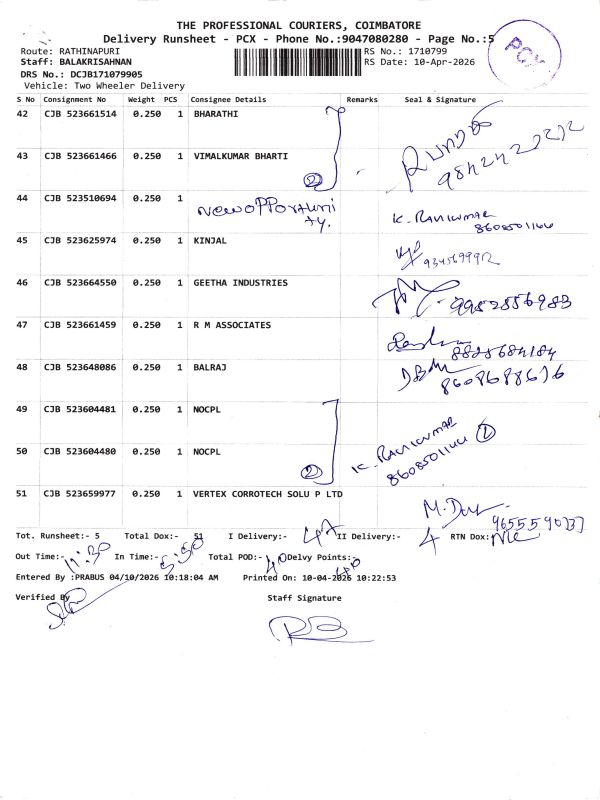 THE PROFESSIONAL COURIERS, COIMBATORE
Delivery Runsheet - PCX - Phone No.:9047080280 - Page No.:5
PCX
Route: RATHINAPURI
RS No.: 1710799
Staff: BALAKRISAHNAN
RS Date: 10-Apr-2026
DRS No.: DCJB171079905
Vehicle: Two Wheeler Delivery
S No Consignment No Weight PCS Consignee Details Remarks Seal & Signature
42 CJB 523661514 0.250 1 BHARATHI
43 CJB 523661466 0.250 1 VIMALKUMAR BHARTI 2
44 CJB 523510694 0.250 1 New opportuni
ty. K. RAVIKUMAR
8608501144
45 CJB 523625974 0.250 1 KINJAL
46 CJB 523664550 0.250 1 GEETHA INDUSTRIES 9952856983
47 CJB 523661459 0.250 1 R M ASSOCIATES
8825684184
48 CJB 523648086 0.250 1 BALRAJ
49 CJB 523604481 0.250 1 NOCPL
50 CJB 523604480 0.250 1 NOCPL 2 K. RAVIKUMAR
8608501144 2
51 CJB 523659977 0.250 1 VERTEX CORROTECH SOLU P LTD
Tot. Runsheet:- 5 Total Dox:- 51 I Delivery:- 47 II Delivery:- 4 RTN Dox:-
Out Time:- 11:30 In Time:- 5:50 Total POD:- 40 Delvy Points:- 40
Entered By :PRABUS 04/10/2026 10:18:04 AM Printed On: 10-04-2026 10:22:53
Verified By
Staff Signature